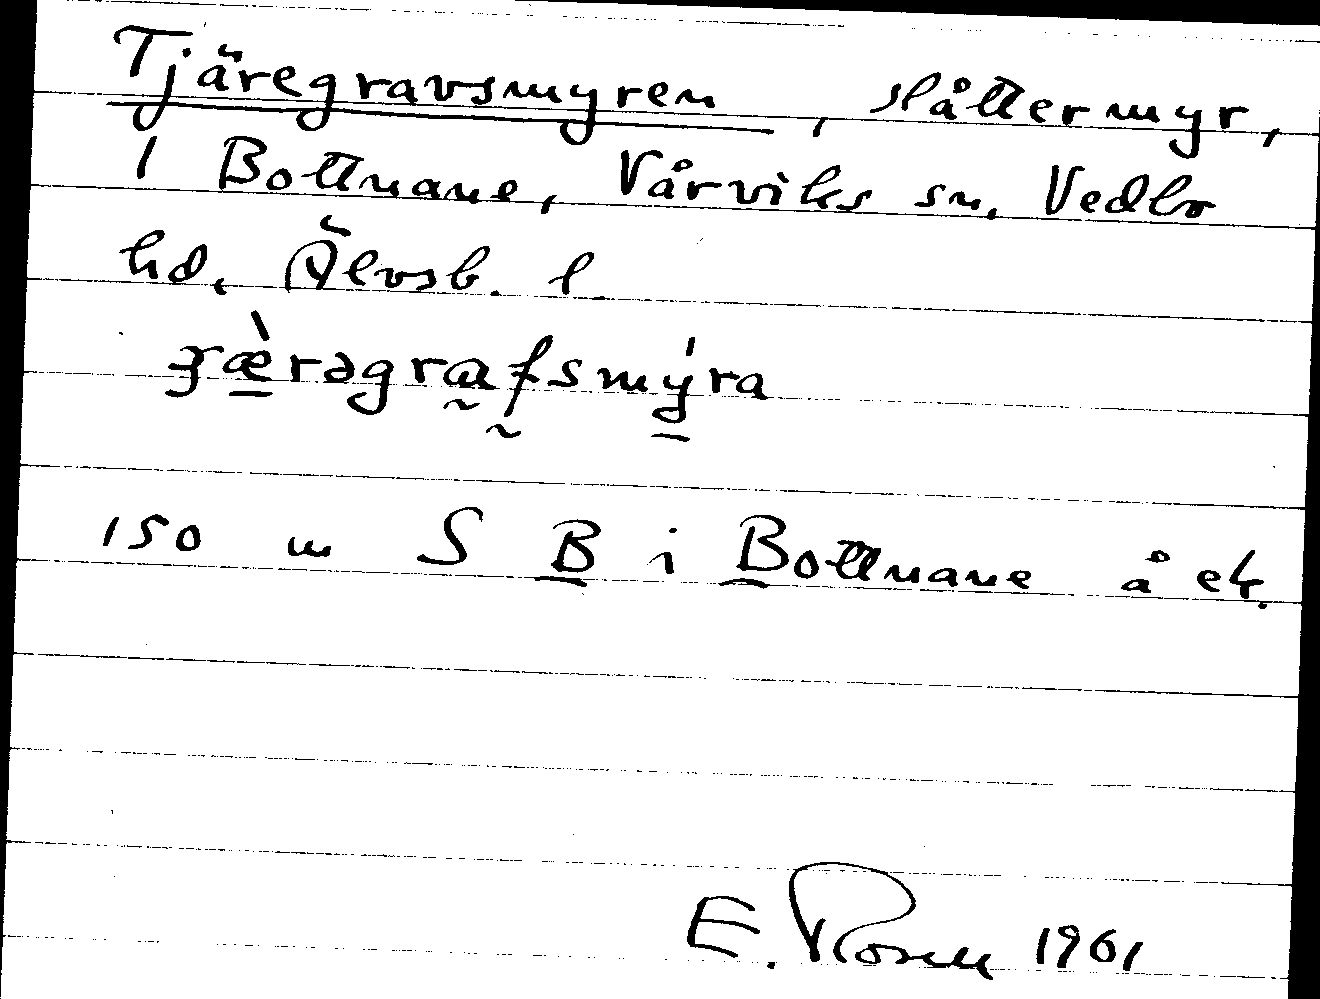 Tjäregravsmyren, slåttermyr,
1 Bottnane, Vårviks sn. Vedbo
hd, Älvsb. l.
ʒæ̀rəgrafsmýra
150 m S B i Bottnane å ek.
E. Rosell 1961